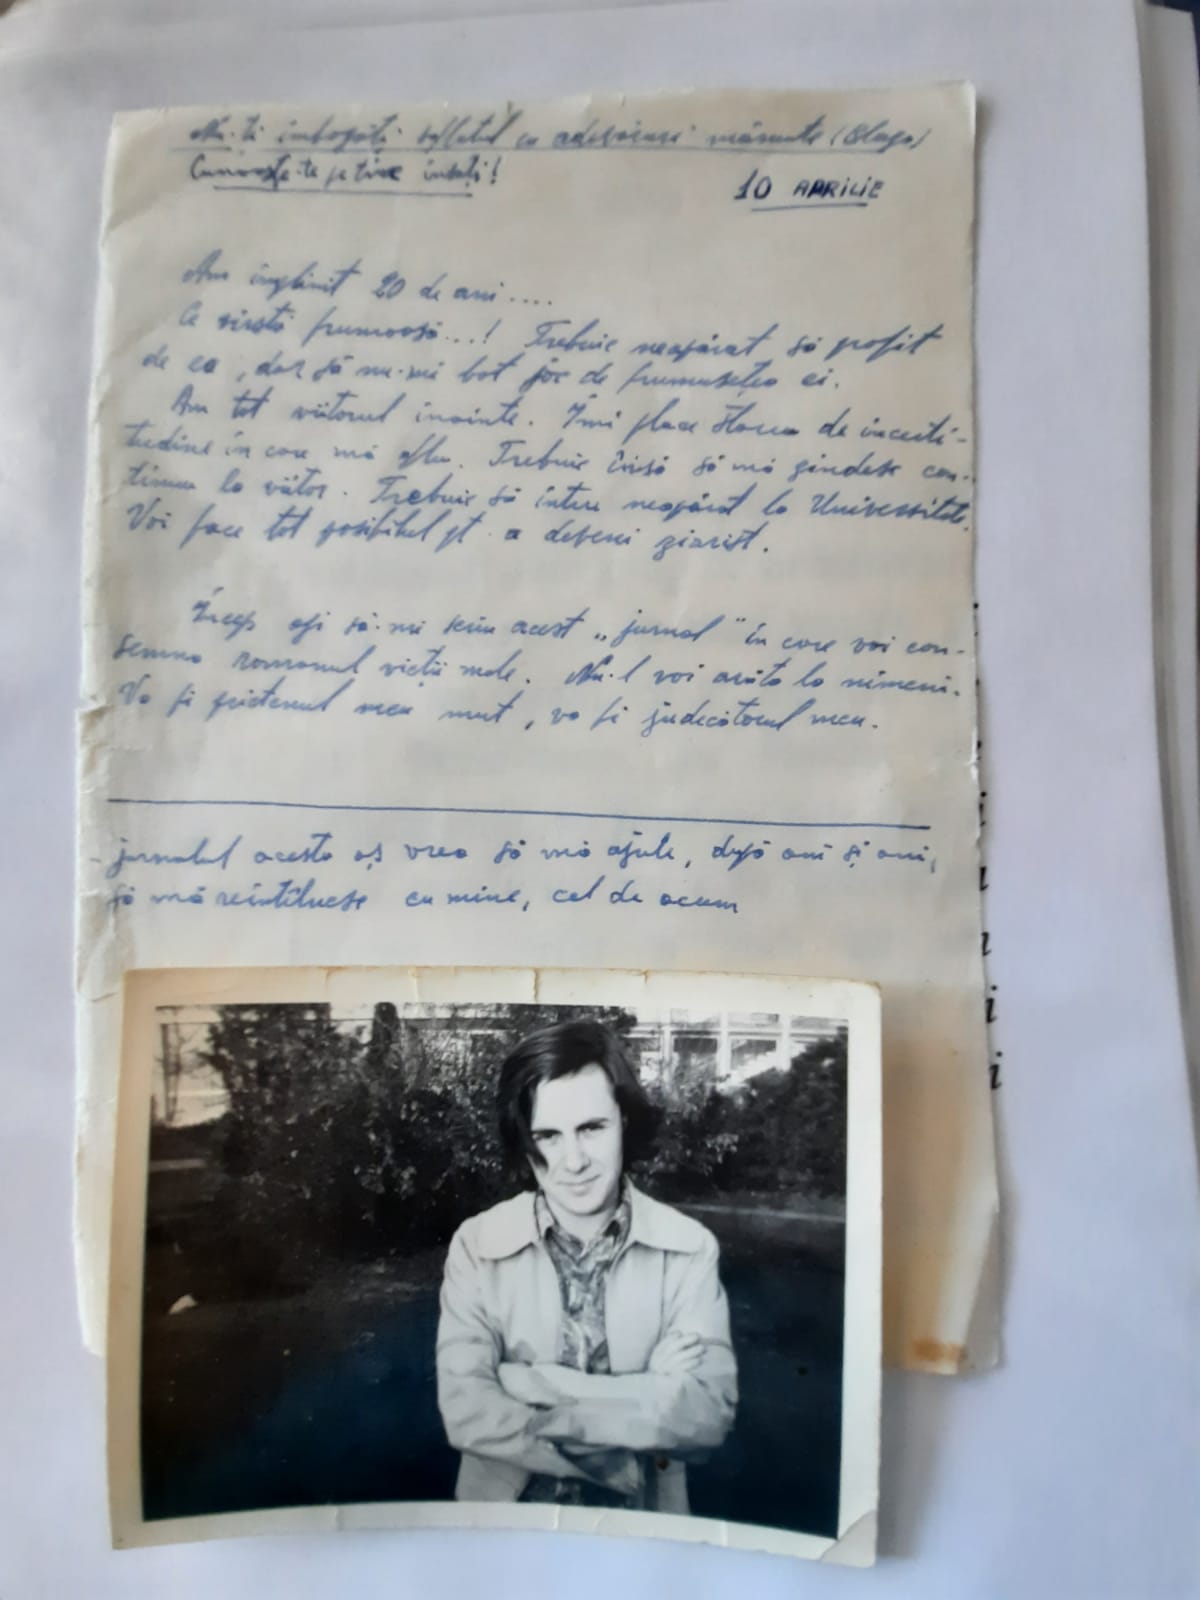 Nu-ți îmbogăți sufletul cu adevăruri mărunte (Blaga)
Cunoaște-te pe tine însuți!
10 APRILIE
Am împlinit 20 de ani....
Ce vîrstă frumoasă...! Trebuie neapărat să profit
de ea, dar să nu-mi bat joc de frumusețea ei.
Am tot viitorul înainte. Îmi place starea de incerti-
tudine în care mă aflu. Trebuie însă să mă gîndesc con-
tinuu la viitor. Trebuie să intru neapărat la Universitate.
Voi face tot posibilul pt. a deveni ziarist.
Încep azi să-mi scriu acest „jurnal" în care voi con-
semna romanul vieții mele. Nu-l voi arăta la nimeni.
Va fi prietenul meu mut, va fi judecătorul meu.
- jurnalul acesta aș vrea să mă ajute, după ani și ani,
să mă reîntîlnesc cu mine, cel de acum
i
i